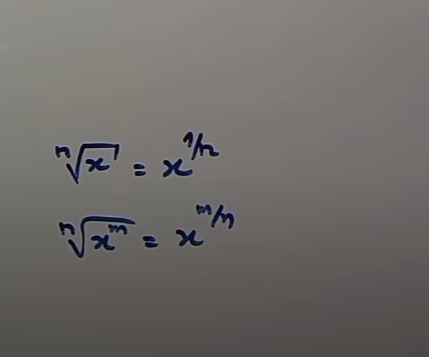 ⁿ√x = x^1/n
ⁿ√x^m = x^m/n